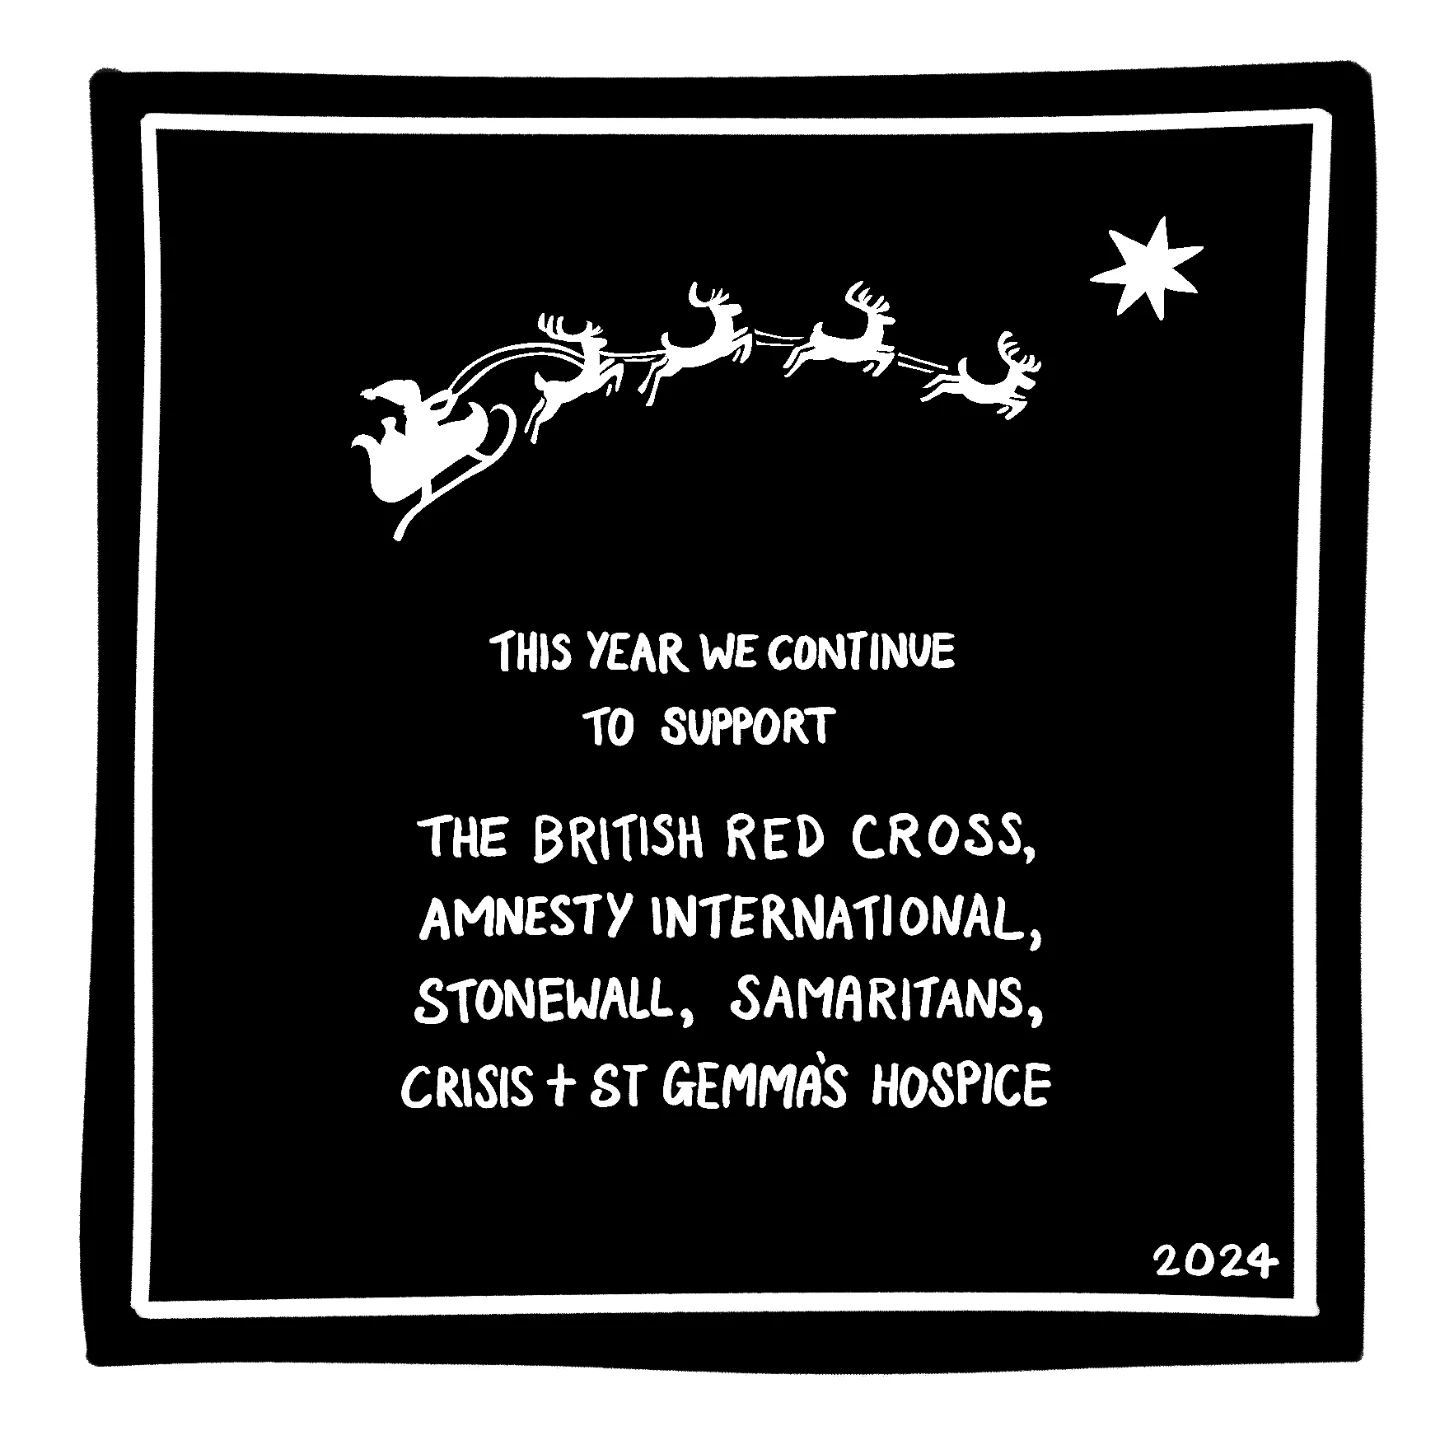 THIS YEAR WE CONTINUE
TO SUPPORT
THE BRITISH RED CROSS,
AMNESTY INTERNATIONAL,
STONEWALL, SAMARITANS,
CRISIS + ST GEMMA'S HOSPICE
2024